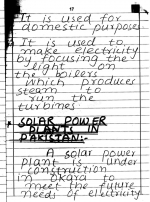 17
It is used for
domestic purposes
It is used to
make electricity
by focusing the
light on
the boilers
which produces
steam to
run the
turbines
SOLAR POWER
PLANTS IN
PAKISTAN:-
A solar power
plant is under
construction
in Okara to
meet the future
needs of electricity